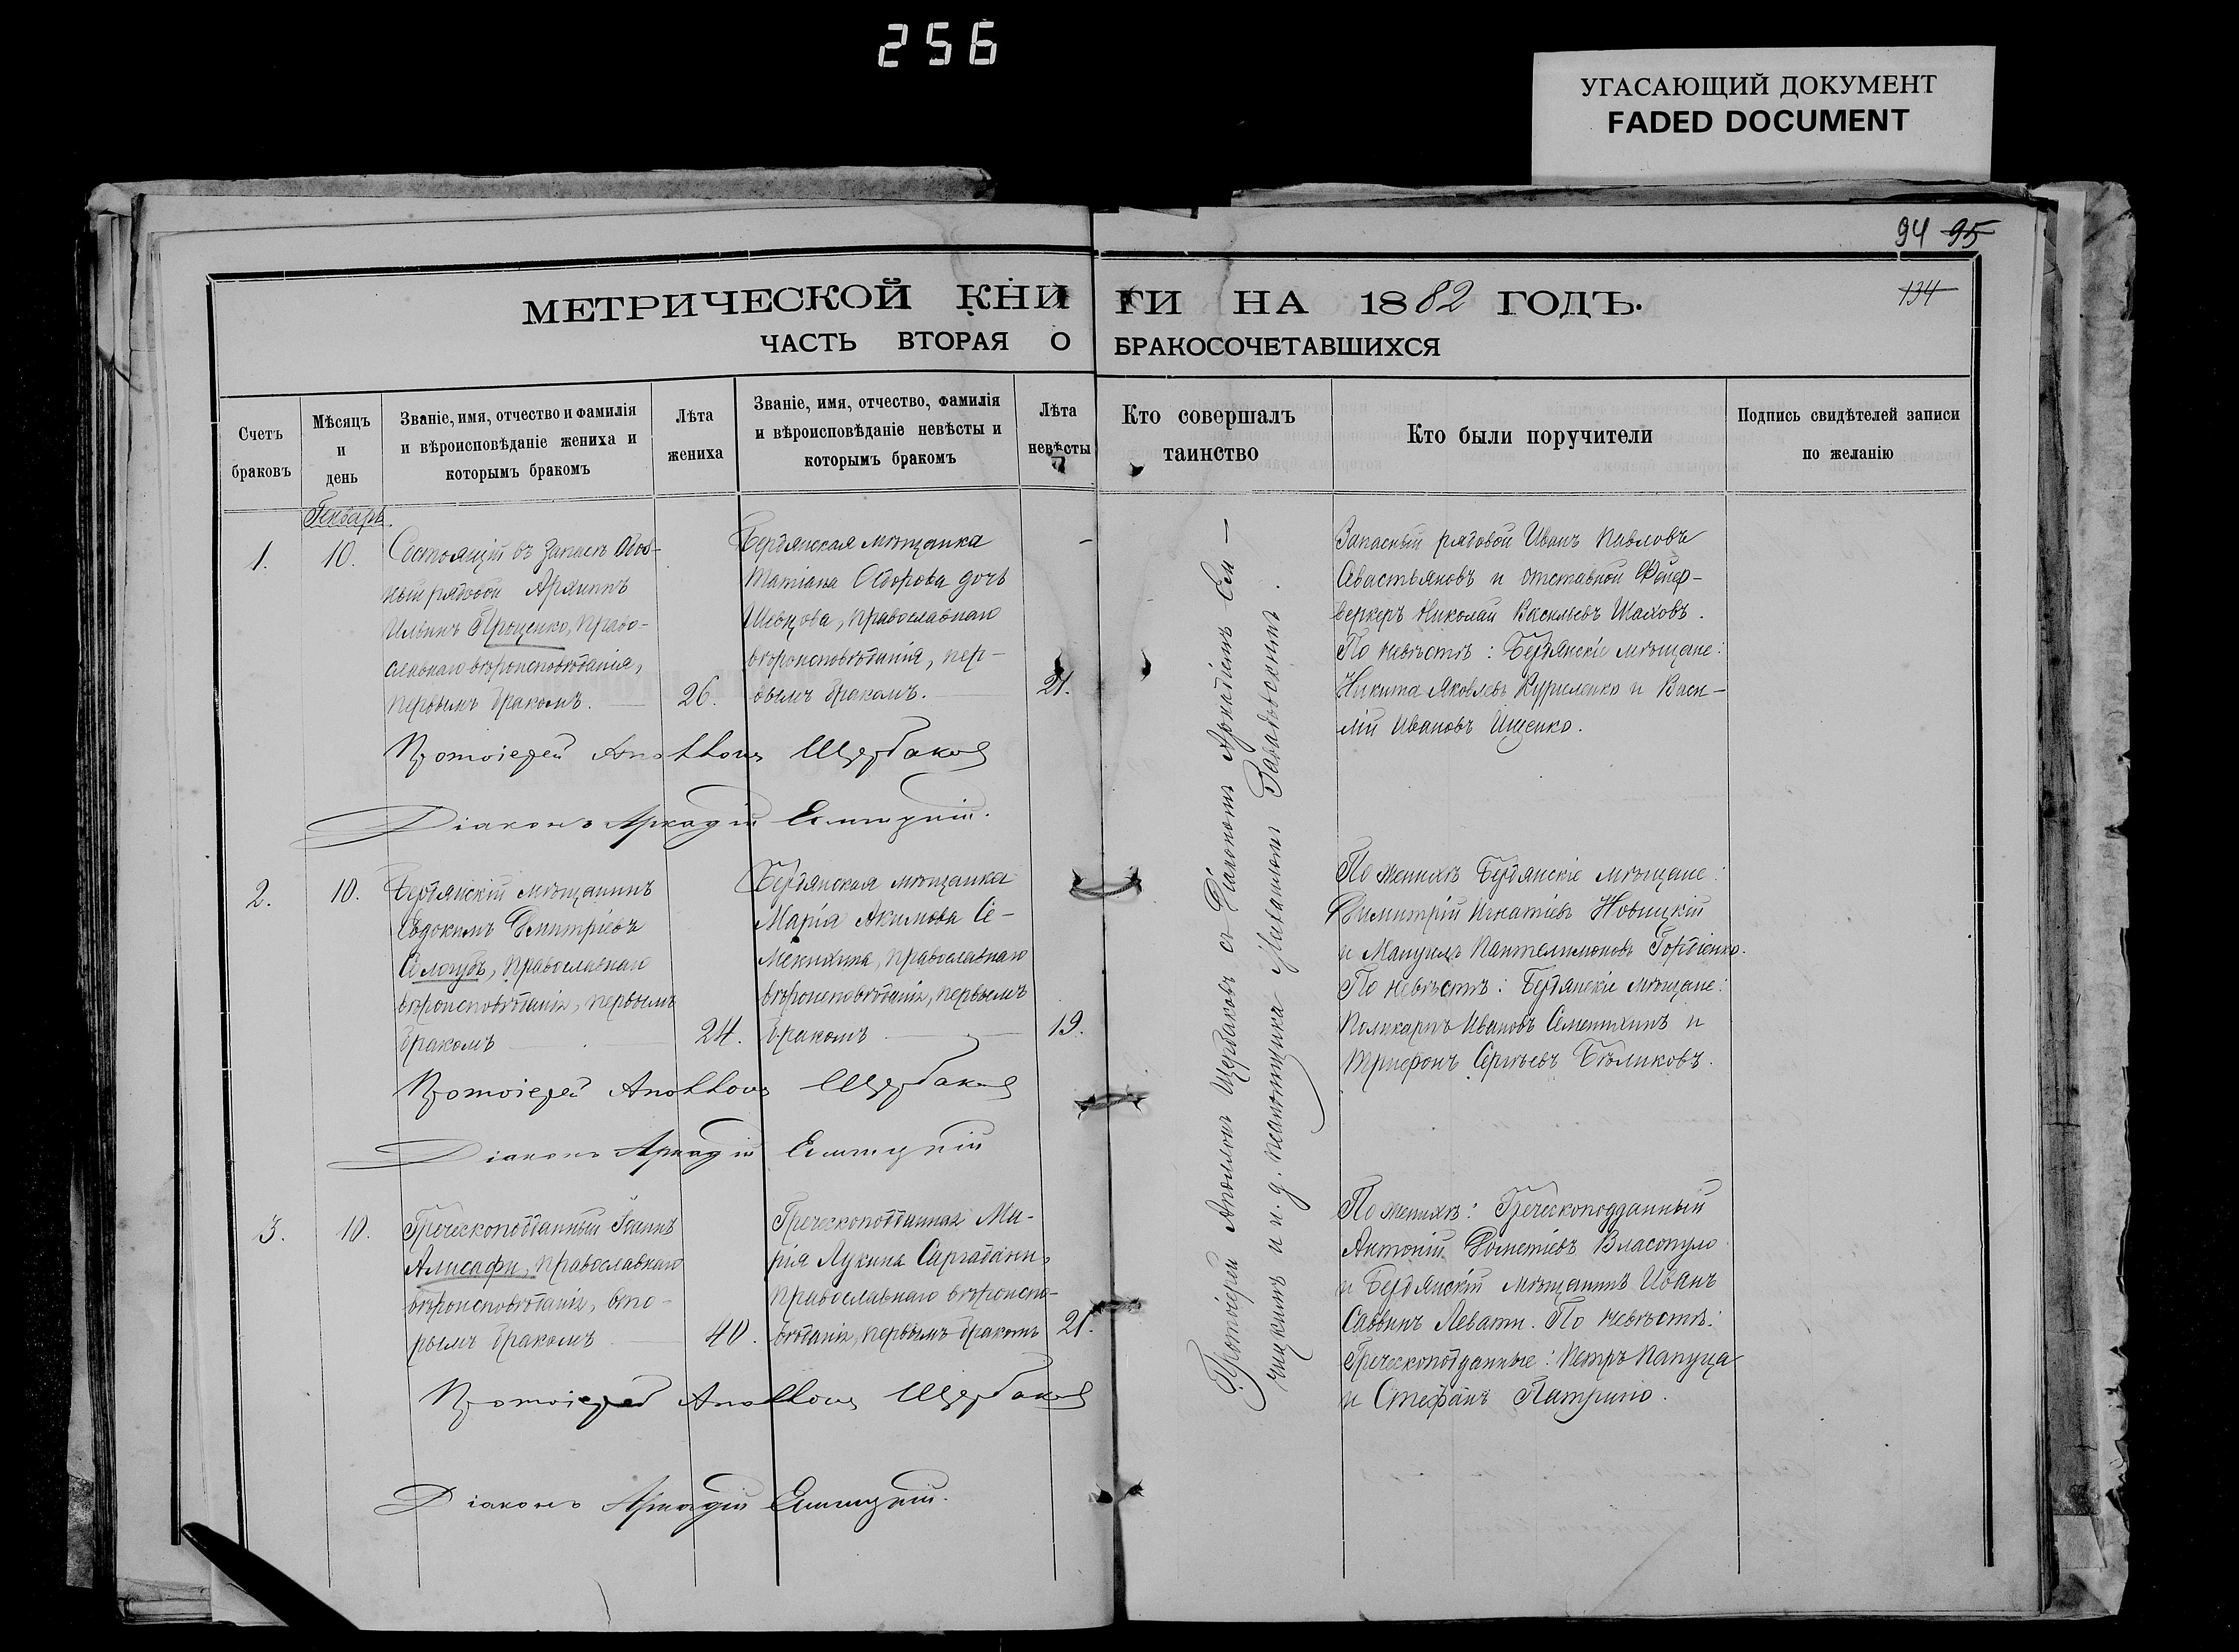 256
УГАСАЮЩИЙ ДОКУМЕНТ
FADED DOCUMENT
94 95
134
МЕТРИЧЕСКОЙ КНИГИ НА 1882 ГОДЪ.
ЧАСТЬ ВТОРАЯ О БРАКОСОЧЕТАВШИХСЯ
Счетъ
браковъ
Мѣсяцъ
и
день
Званіе, имя, отчество и фамилія
и вѣроисповѣданіе жениха и
которымъ бракомъ
Лѣта
жениха
Званіе, имя, отчество, фамилія
и вѣроисповѣданіе невѣсты и
которымъ бракомъ
Лѣта
невѣсты
Кто совершалъ
таинство
Кто были поручители
Подпись свидѣтелей записи
по желанію
Генварь.
1.
10.
Состоящій въ запасѣ
ный рядовой Архиппъ
Ильинъ Проценко, право-
славнаго вѣроисповѣданія,
первымъ бракомъ.
26.
Бердянская мѣщанка
Татіана Ѳдорова дочь
Шевцова, православнаго
вѣроисповѣданія, пер-
вымъ бракомъ.
21.
Протоіерей Аполлонъ Щербаковъ съ Діакономъ Аркадіемъ Ели-
ницкимъ и и. д. псаломщика Заваdовскимъ.
Запасный рядовой Иванъ Павловъ
Савастьяновъ и отставной Фейер-
веркеръ Николай Васильевъ Шаховъ.
По невѣстѣ: Бердянскіе мѣщане:
Никита Яковлевъ Куриленко и Васи-
лій Ивановъ Ищенко.
Протоіерей Аполлонъ Щербаковъ
Діаконъ Аркадій Елиницкій.
2.
10.
Бердянскій мѣщанинъ
Евдокимъ Димитріевъ
Сологубъ, православнаго
вѣроисповѣданія, первымъ
бракомъ
24.
Бердянская мѣщанка
Марія Акимова Се-
менихина, православнаго
вѣроисповѣданія, первымъ
бракомъ
19.
По женихѣ Бердянскіе мѣщане:
Димитрій Игнатіевъ Новицкій
и Мануилъ Пантелимоновъ Гордіенко.
По невѣстѣ: Бердянскіе мѣщане:
Поликарпъ Ивановъ Семенихинъ и
Трифонъ Сергѣевъ Бѣликовъ.
Протоіерей Аполлонъ Щербаковъ
Діаконъ Аркадій Елиницкій
3.
10.
Греческоподданный Іоаннъ
Алисафи, православнаго
вѣроисповѣданія, вто-
рымъ бракомъ
40.
Греческоподданная Ма-
рія Лукина Саргадани,
православнаго вѣроиспо-
вѣданія, первымъ бракомъ
21.
По женихѣ: Греческоподданный
Антоній Дометіевъ Власопуло
и Бердянскій мѣщанинъ Иванъ
Саввинъ Левати. По невѣстѣ:
Греческоподданные: Петръ Папуца
и Стефанъ Патрино.
Протоіерей Аполлонъ Щербаковъ
Діаконъ Аркадій Елиницкій.